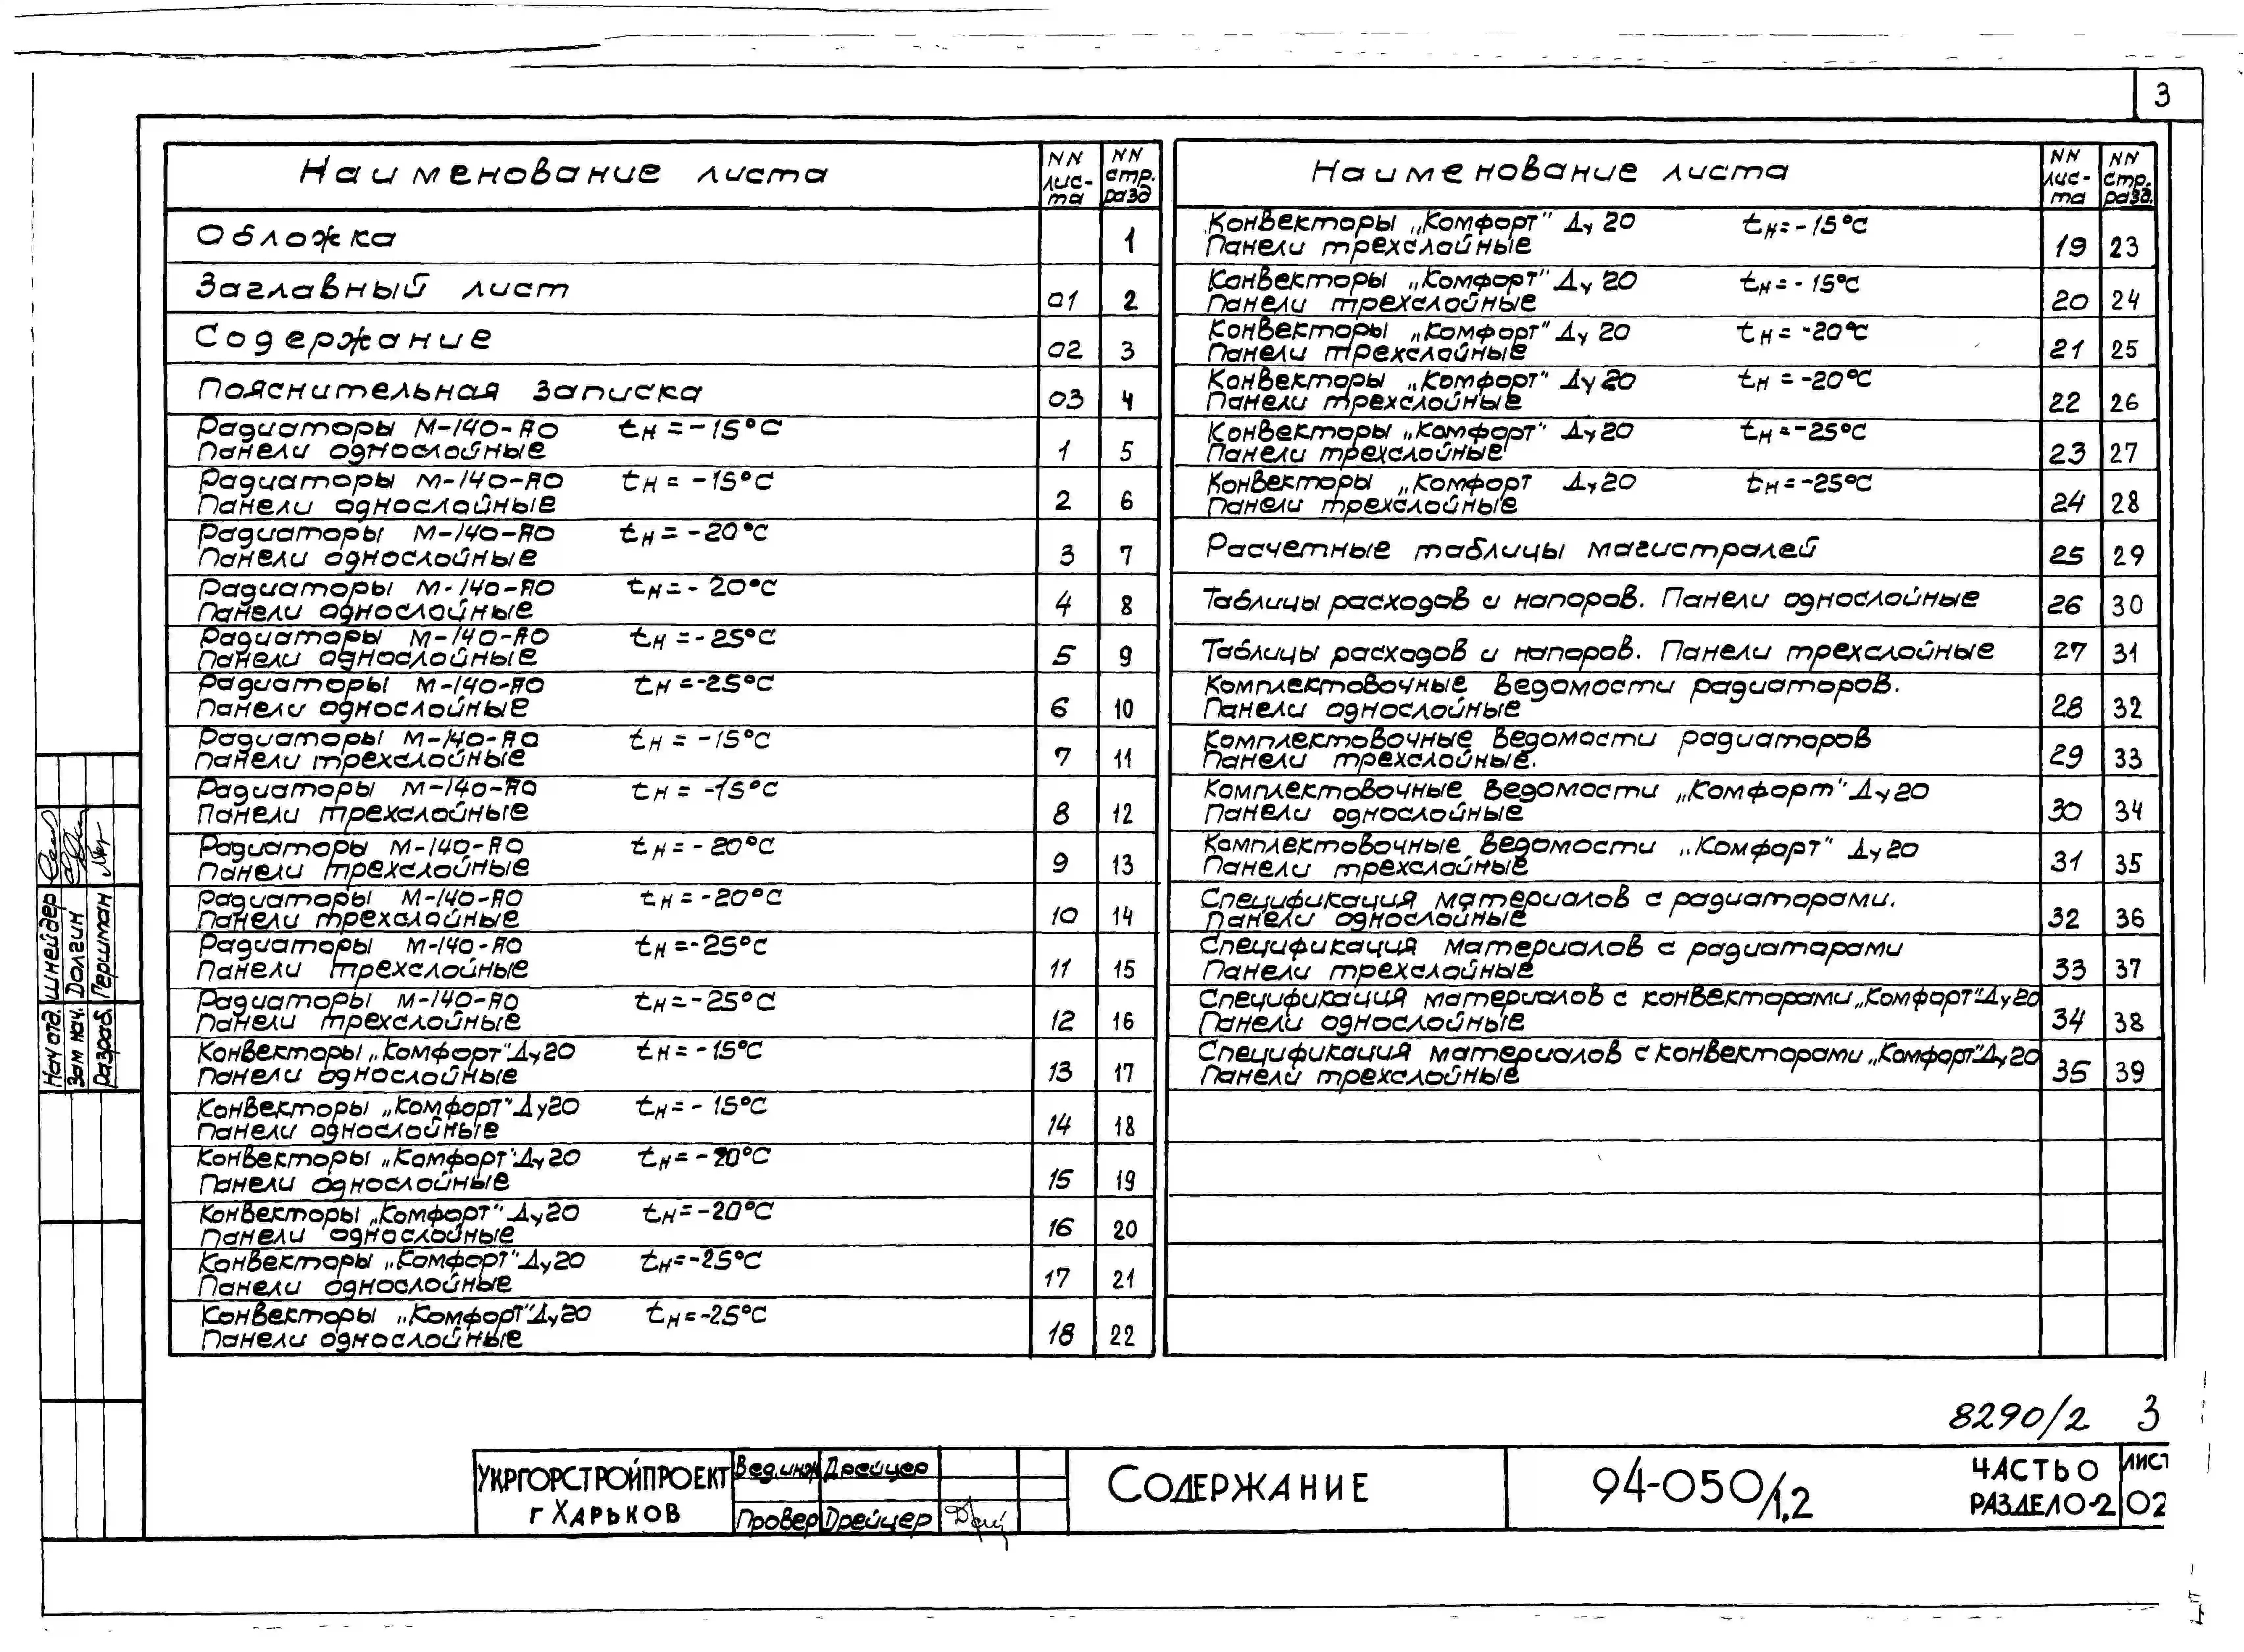 3
Наименование листа
NN лис- та
NN стр. разд
Обложка 1
Заглавный лист 01 2
Содержание 02 3
Пояснительная записка 03 4
Радиаторы М-140-АО tн=-15°С
Панели однослойные 1 5
Радиаторы М-140-АО tн=-15°С
Панели однослойные 2 6
Радиаторы М-140-АО tн=-20°С
Панели однослойные 3 7
Радиаторы М-140-АО tн=-20°С
Панели однослойные 4 8
Радиаторы М-140-АО tн=-25°С
Панели однослойные 5 9
Радиаторы М-140-АО tн=-25°С
Панели однослойные 6 10
Радиаторы М-140-АО tн=-15°С
Панели трехслойные 7 11
Радиаторы М-140-АО tн=-15°С
Панели трехслойные 8 12
Радиаторы М-140-АО tн=-20°С
Панели трехслойные 9 13
Радиаторы М-140-АО tн=-20°С
Панели трехслойные 10 14
Радиаторы М-140-АО tн=-25°С
Панели трехслойные 11 15
Радиаторы М-140-АО tн=-25°С
Панели трехслойные 12 16
Конвекторы „Комфорт" Ду20 tн=-15°С
Панели однослойные 13 17
Конвекторы „Комфорт" Ду20 tн=-15°С
Панели однослойные 14 18
Конвекторы „Комфорт" Ду20 tн=-20°С
Панели однослойные 15 19
Конвекторы „Комфорт" Ду20 tн=-20°С
Панели однослойные 16 20
Конвекторы „Комфорт" Ду20 tн=-25°С
Панели однослойные 17 21
Конвекторы „Комфорт" Ду20 tн=-25°С
Панели однослойные 18 22
Наименование листа
NN лис- та
NN стр. разд.
Конвекторы „Комфорт" Ду 20 tн=-15°С
Панели трехслойные 19 23
Конвекторы „Комфорт" Ду 20 tн=-15°С
Панели трехслойные 20 24
Конвекторы „Комфорт" Ду 20 tн=-20°С
Панели трехслойные 21 25
Конвекторы „Комфорт" Ду 20 tн=-20°С
Панели трехслойные 22 26
Конвекторы „Комфорт" Ду20 tн=-25°С
Панели трехслойные 23 27
Конвекторы „Комфорт Ду20 tн=-25°С
Панели трехслойные 24 28
Расчетные таблицы магистралей 25 29
Таблицы расходов и напоров. Панели однослойные 26 30
Таблицы расходов и напоров. Панели трехслойные 27 31
Комплектовочные ведомости радиаторов.
Панели однослойные 28 32
Комплектовочные ведомости радиаторов
Панели трехслойные. 29 33
Комплектовочные ведомости „Комфорт" Ду20
Панели однослойные 30 34
Комплектовочные ведомости „Комфорт" Ду20
Панели трехслойные 31 35
Спецификация материалов с радиаторами.
Панели однослойные 32 36
Спецификация материалов с радиаторами
Панели трехслойные 33 37
Спецификация материалов с конвекторами „Комфорт" Ду20
Панели однослойные 34 38
Спецификация материалов с конвекторами „Комфорт" Ду20
Панели трехслойные 35 39
Нач отд. Шнейдер
Зам нач. Долгин
Разраб. Гершман
8290/2 3
УКРГОРСТРОЙПРОЕКТ
г ХАРЬКОВ
Вед.инж Дрейцер
Провер Дрейцер
СОДЕРЖАНИЕ
94-050/1.2
ЧАСТЬ 0
РАЗДЕЛ 0-2
ЛИСТ
02